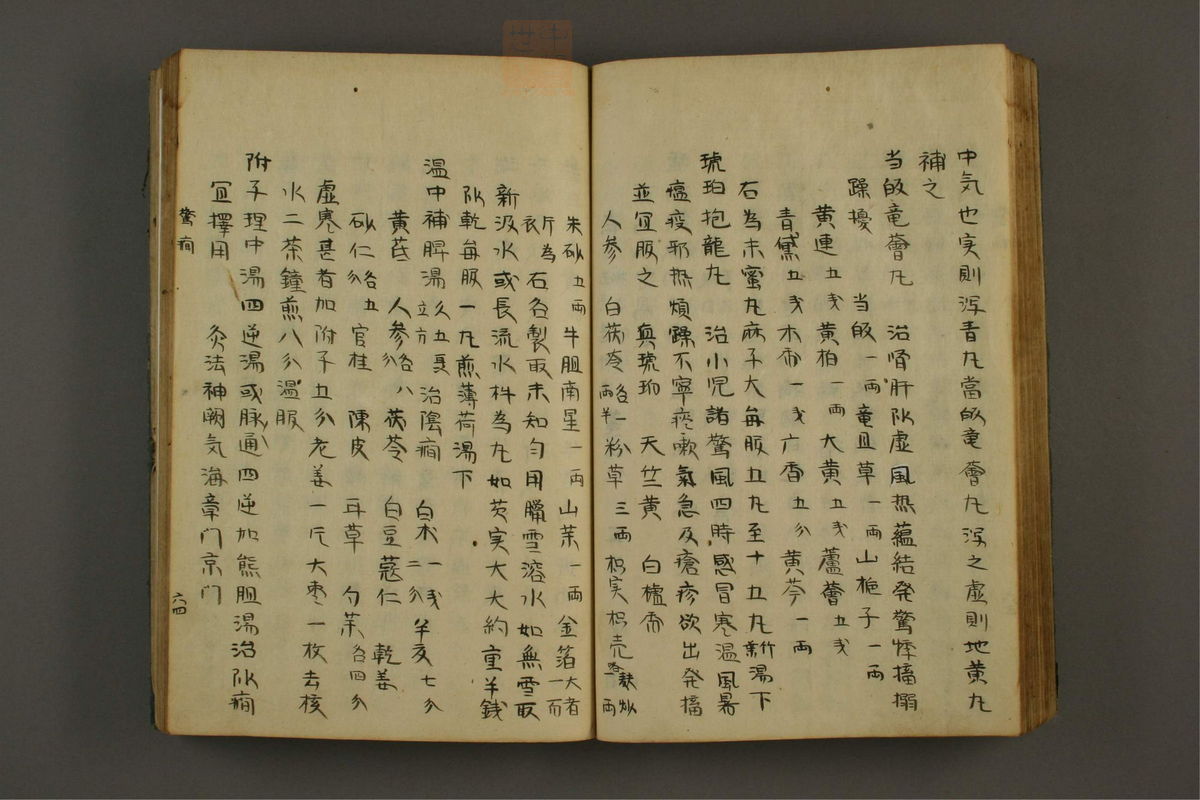 中気也实則泻青丸當皈竜薈丸泻之虚則地黄丸
補之
当皈竜薈丸　治肾肝阴虚風热蘊結発驚悸搐搦
躁擾　当皈一両竜胆草一両山栀子一両
黄連五戋黄柏一両大黄五戋蘆薈五戋
青黛五戋木香一戋六香五分黄芩一両
右為末蜜丸麻子大每服五丸至十五丸新竹湯下
琥珀抱龍丸　治小児諸驚風四時感冒寒温風暑
瘟疫邪热煩躁不寧痰嗽氣急及瘡疹欲出発搐
並宜服之　真琥珀　天竺黄　白檀香
人參　白茯苓各一両半粉草三両枳实枳壳各麸炒一両
朱砂五両牛胆南星一両山茱一両金箔大者一而
斤為衣　右各製取末知匀用臘雪溶水如無雪取
新汲水或長流水杵為丸如芡実大大約重半錢
阴乾每服一丸煎薄荷湯下
温中補脾湯　治陰癇　白术一戋二分半夏七分
黄芪　人參各八分　茯苓　白豆蔻仁　乾姜
砂仁各五分　官桂　陳皮　耳草　勺茱各四分
虚寒甚者加附子五分老姜一片大枣一枚去核
水二茶鐘煎八分温服
附子理中湯四逆湯或脉通四逆加熊胆湯治阴癇
宜擇用　灸法神阙気海章门京门
驚癇
六四